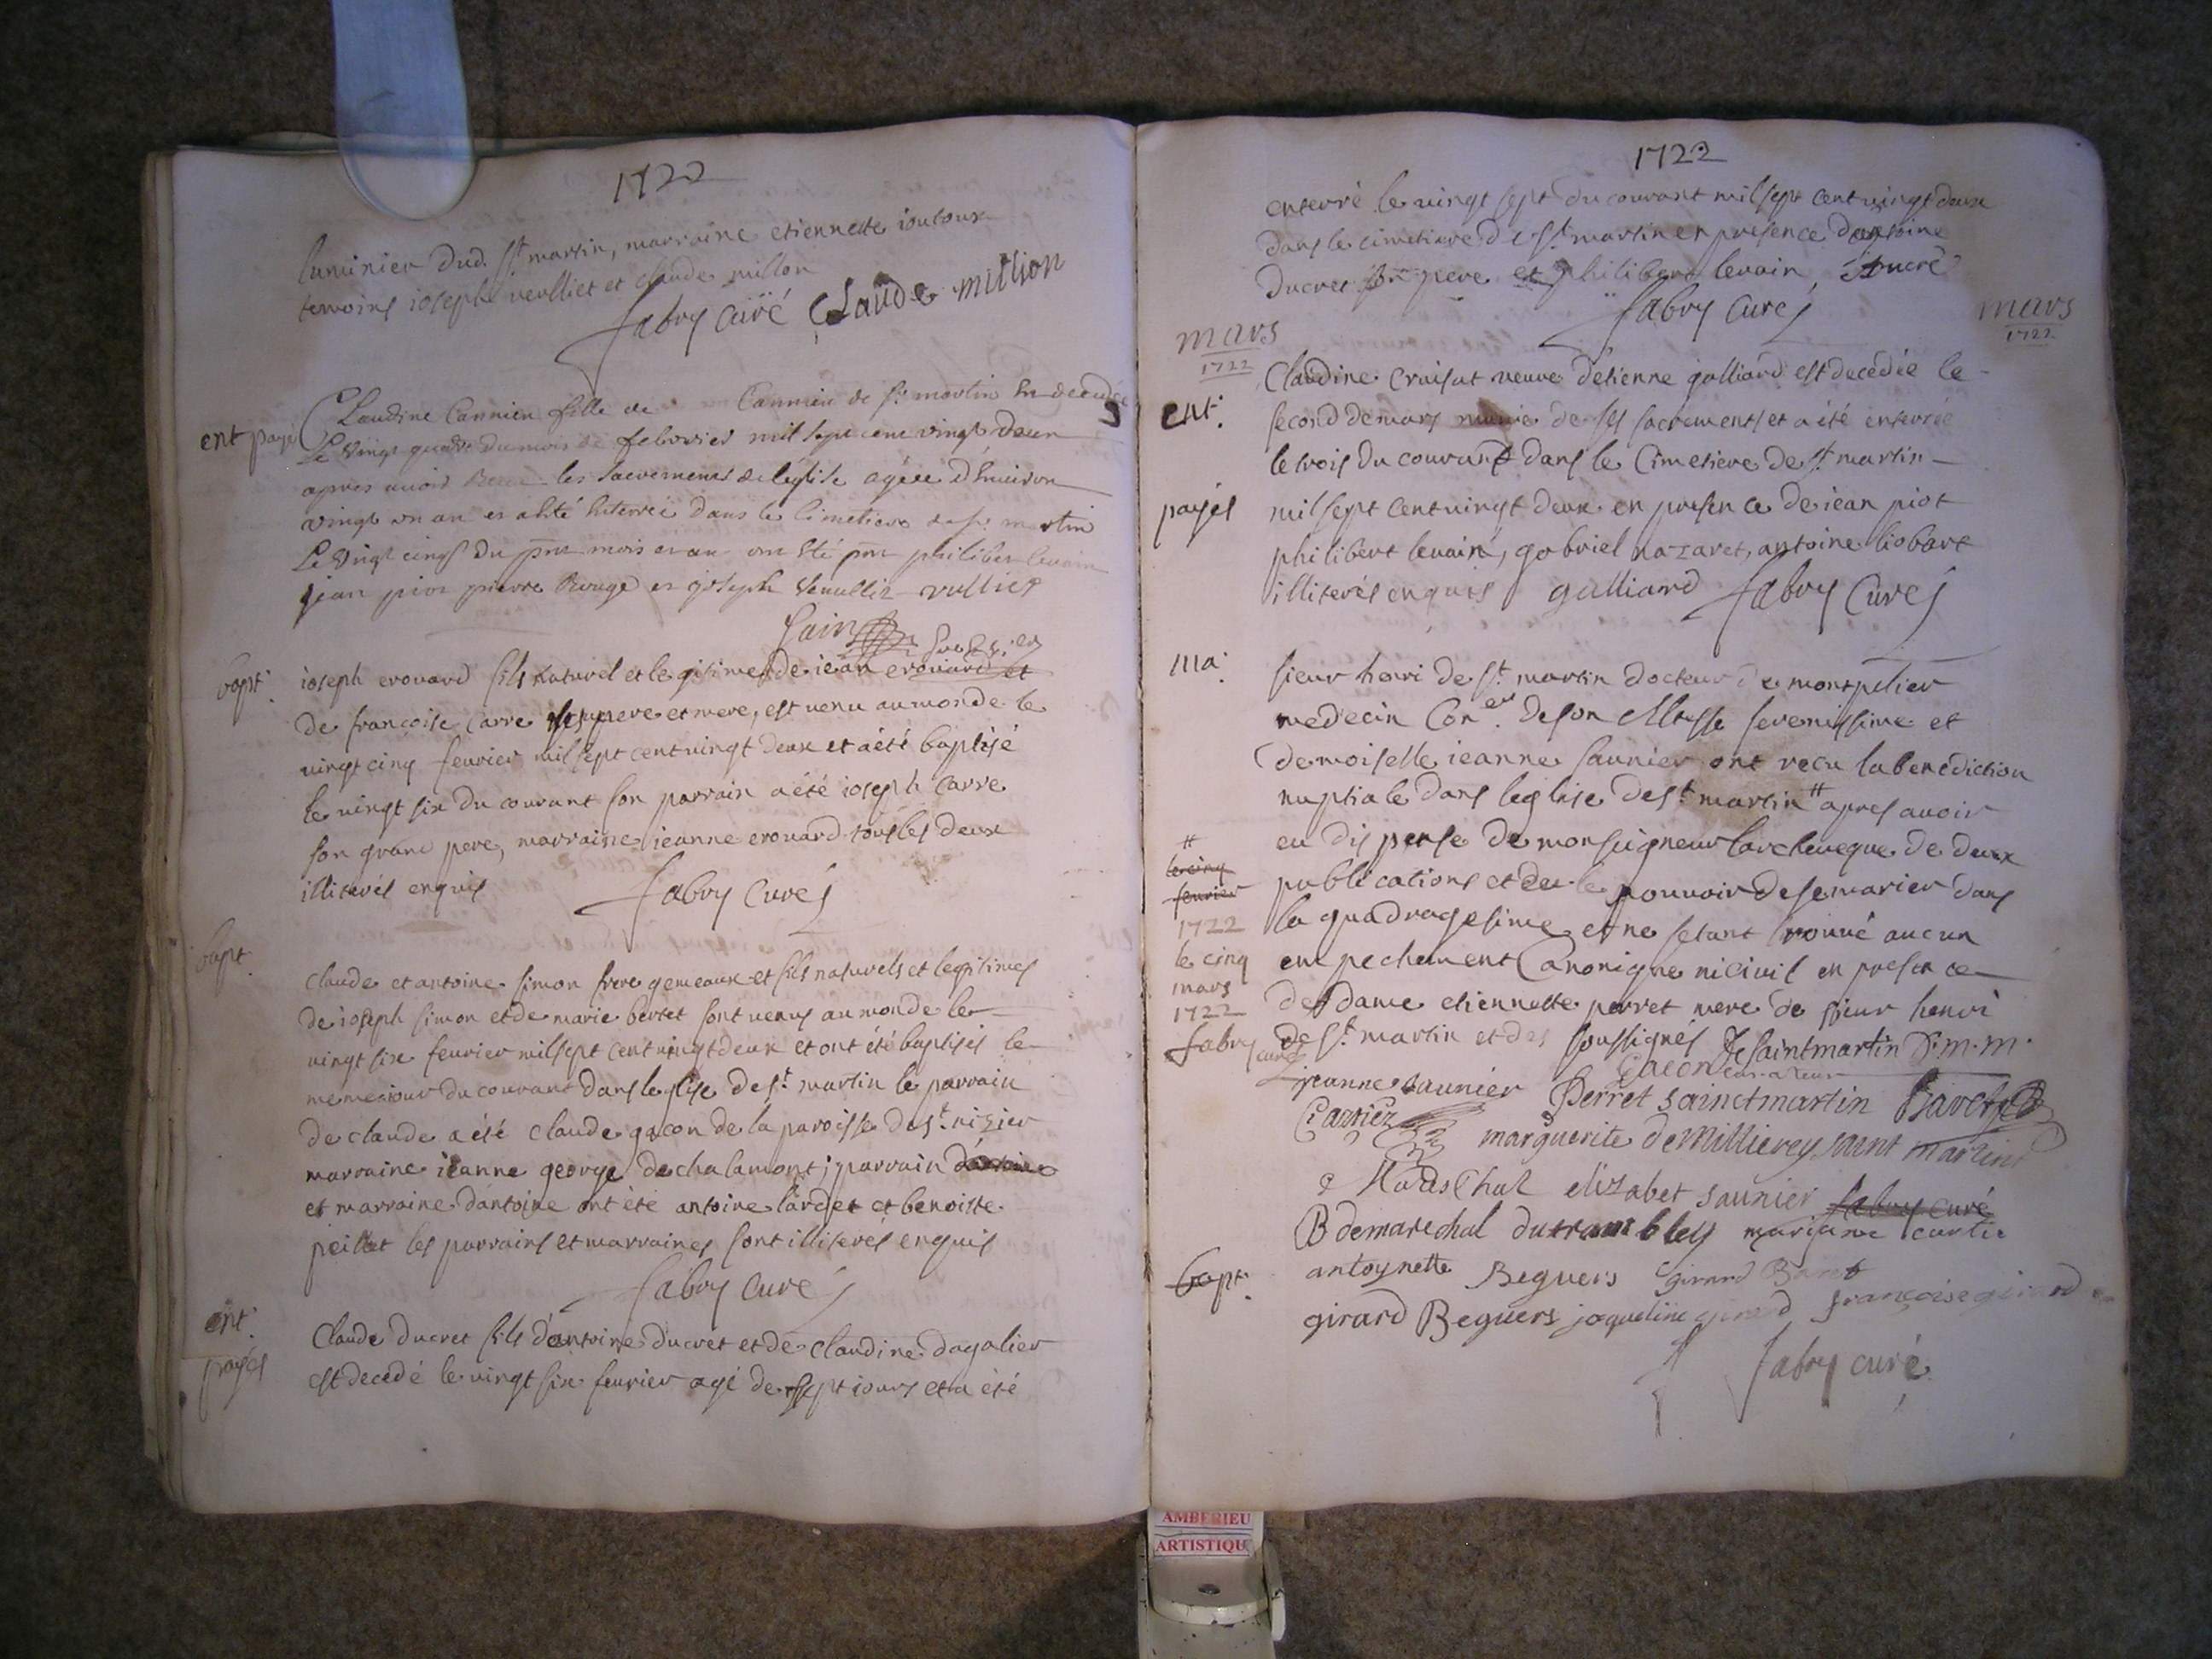 1722
luminier dud. st martin, marraine etiennette ioutoux
temoins ioseph veulliet et claude millon
fabry curé Claude million
ent payé
Claudine Cannien fille de Cannien de st martin est decedée
Le vingt quatre du mois de febvrier mil sept cent vingt deux
apres avoir Receu les sacrements de léglise agéee d'Environ
vingt un an et a hté Enterrée dans le Cimetiere de st martin
Le vingt cinq du pnt mois et an ont été pnt philiber levain
jean piot pierre Rouge et joseph vulliet
bapt.
ioseph erouard fils naturel et legitime de iean erouard et
de françoise carre ses pere et mere, est venu au monde le
vingt cinq fevrier mil sept cent vingt deux et a été baptisé
le vingt six du courant son parrain a été ioseph carre
son grand pere, marraine ieanne erouard tous les deux
illiterés enquis fabry curé
bapt.
claude et antoine simon frere gemeaux et fils naturels et legitimes
de ioseph simon et de marie bertet sont venus au monde le
vingt six fevrier mil sept cent vingt deux et ont été baptisés le
meme iour du courant dans leglise de st martin le parrain
de claude a été claude gacon de la paroisse de st nizier
marraine ieanne george de chalamont; parrain dantoine
et marraine dantoine ont été antoine lardet et benoiste
peillet les parrains et marraines sont illiterés enquis
fabry curé
ent.
payés
Claude ducret fils d'antoine ducret et de claudine dagalier
est decedé le vingt six fevrier agé de sept iours et a été
1722
enterré le vingt sept du courant mil sept cent vingt deux
dans le cimetiere de st martin en presence dantoine
ducret son pere et philibert levain ducre
fabry curé
mars
1722
mars
1722
ent.
payés
Claudine cruisat veuve d'etienne galliard est decedée le
second de mars munie de ses sacrements et a été enterrée
le trois du courant dans le Cimetiere de st martin
mil sept cent vingt deux en presence de iean piot
philibert levain, gabriel nazaret, antoine liobart
illiterés enquis galliard fabry Curé
ma.
sieur henri de st martin docteur de montpelier
medecin Coner de son Altesse serenissime et
demoiselle ieanne saunier ont recu la benediction
nuptiale dans leglise de st martin # apres avoir
eu dispense de monseigneur larcheveque de deux
publications et de le pouvoir de se marier dans
la quadragesime et ne setant trouvé aucun
empechement Canonique ni civil en presence
de dame etiennette perret mere de sieur henri
de st martin et des soussignés De saintmartin D.m.m.
#
le cinq
fevrier
1722
le cinq
mars
1722
fabry curé
Gacon
jeanne saunier Perret sainctmartin
marguerite de Millierey saint martin
elizabet saunier fabry curé
B demarechal dutrambley marianne
bapt.
antoynette Beguers girard
girard Beguers jaqueline girard françoise girard
fabry curé
AMBERIEU
ARTISTIQU